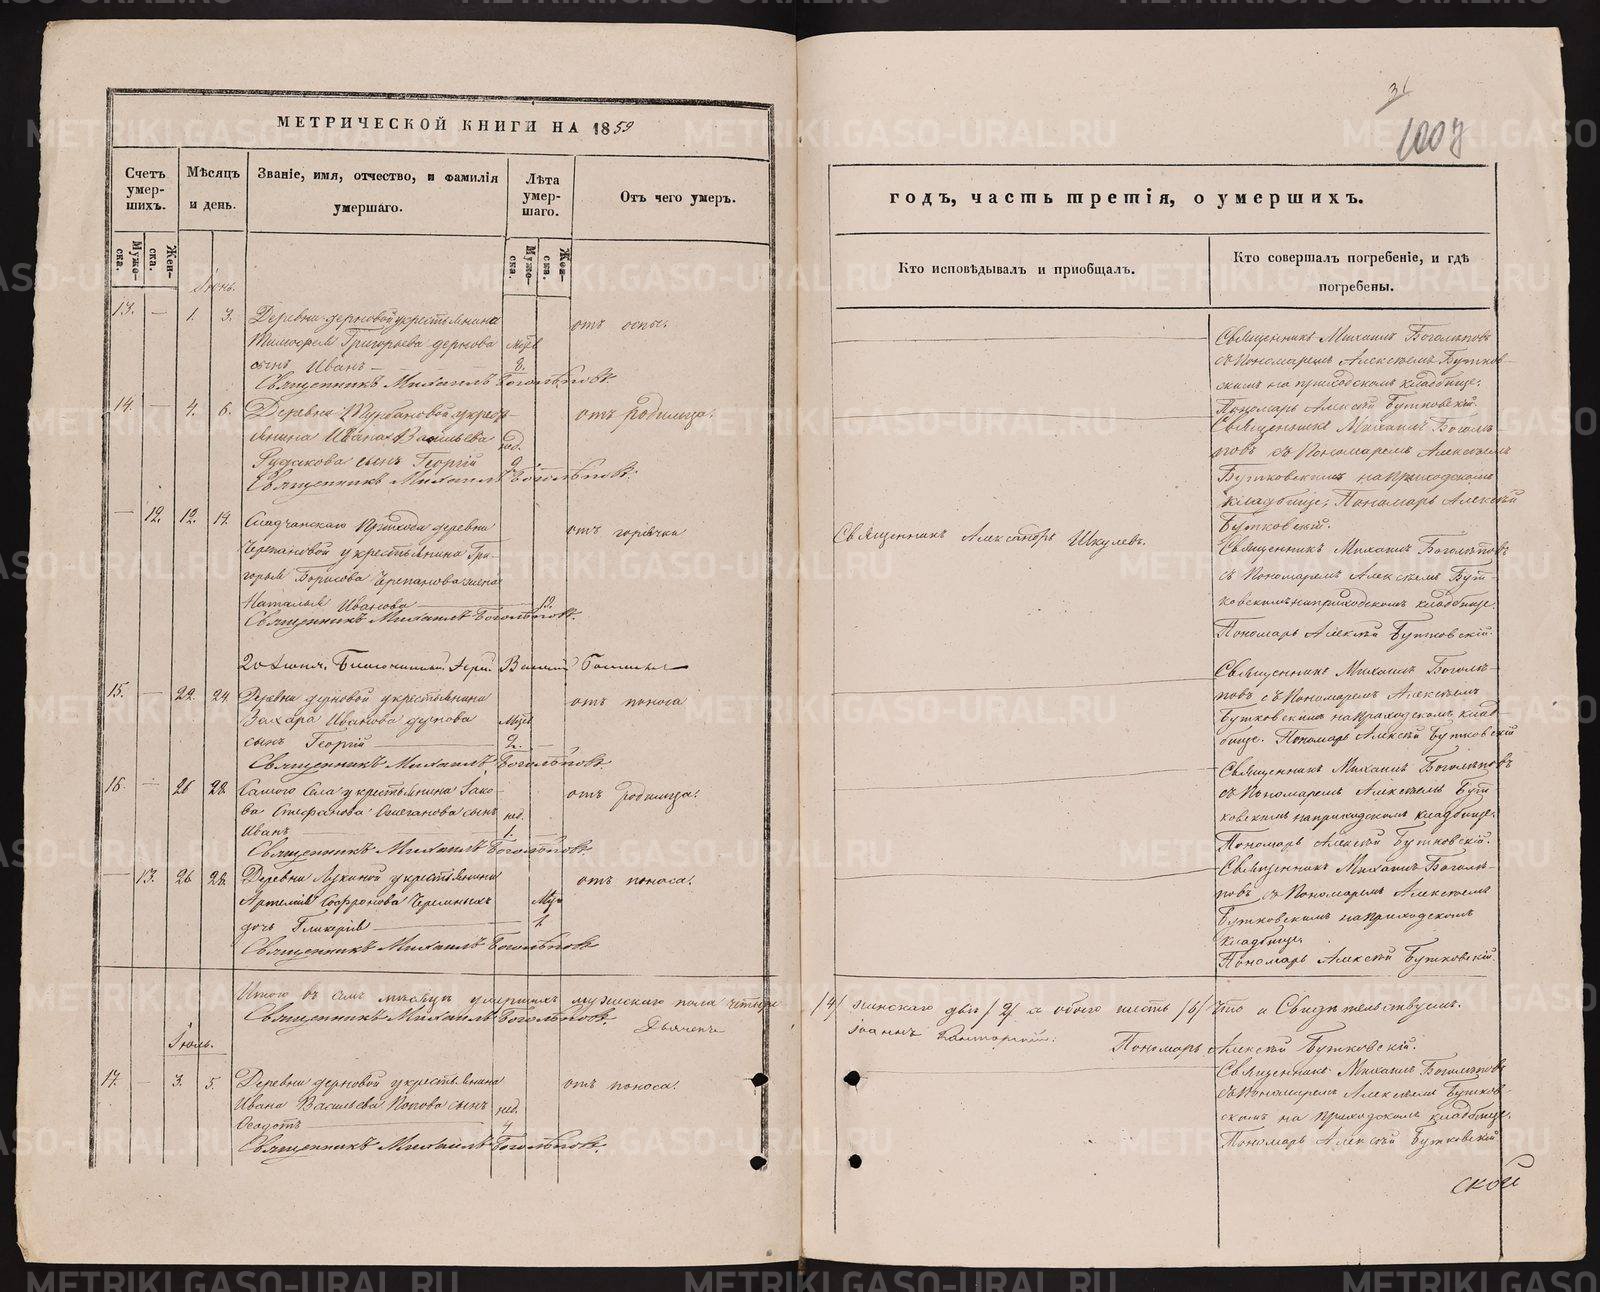 МЕТРИЧЕСКОЙ КНИГИ НА 1859
Счетъ умер-шихъ.
Муже-ска.
Жен-ска.
Мѣсяцъ и день.
Званіе, имя, отчество, и фамилія
умершаго.
Лѣта умер-шаго.
Муже-ска.
Жен-ска.
Отъ чего умеръ.
Іюнь.
13. — 1. 3. Деревни Дерновой у крестьянина
Тимофея Григорьева Дернова
сынъ Иванъ
отъ оспы.
Священникъ Михаилъ Боголѣповъ.
14. — 4. 6. Деревни у кресть-
янина Ивана Васильева нед.
Рудакова сынъ Георгій 2.
отъ родимца.
Священникъ Михаилъ Боголѣповъ.
— 12. 12. 14. прихода деревни
Черепановой у крестьянина Гри-
горья Борисова Черепанова жена
Наталья Иванова
отъ горячки
Священникъ Михаилъ Боголѣповъ.
15. — 22. 24. Деревни Дерновой у крестьянина
Захара Иванова Дернова
сынъ Георгій 2.
отъ поноса
Священникъ Михаилъ Боголѣповъ.
16. — 26 28. Самого Села у крестьянина Іако-
ва Стефанова сынъ нед.
Иванъ 1.
отъ родимца.
Священникъ Михаилъ Боголѣповъ.
— 13. 26 28. Деревни у крестьянина
Артемія Софронова Черемныхъ
дочь Гликерія 1.
отъ поноса.
Священникъ Михаилъ Боголѣповъ.
Итого въ семъ мѣсяцѣ умершихъ мужескаго пола четыре
Священникъ Михаилъ Боголѣповъ.
Дьячекъ
Іюль.
17. — 3. 5. Деревни Дерновой у крестьянина
Ивана Васильева Попова сынъ нед.
Ѳедотъ 4
отъ поноса.
Священникъ Михаилъ Боголѣповъ.
31
1007
годъ, часть третія, о умершихъ.
Кто исповѣдывалъ и пріобщалъ.
Кто совершалъ погребеніе, и гдѣ
погребены.
Священникъ Михаилъ Боголѣповъ
съ Пономаремъ Алексѣемъ Бутков-
скимъ на приходскомъ кладбищѣ.
Пономарь Алексѣй Бутковскій.
Священникъ Михаилъ Боголѣ-
повъ съ Пономаремъ Алексѣемъ
Бутковскимъ на приходскомъ
кладбищѣ. Пономарь Алексѣй
Бутковскій.
Священникъ Александръ Шкулевъ.
Священникъ Михаилъ Боголѣповъ
съ Пономаремъ Алексѣемъ Бут-
ковскимъ на приходскомъ кладбищѣ.
Пономарь Алексѣй Бутковскій.
Священникъ Михаилъ Боголѣ-
повъ съ Пономаремъ Алексѣемъ
Бутковскимъ на приходскомъ клад-
бищѣ. Пономарь Алексѣй Бутковскій
Священникъ Михаилъ Боголѣповъ
съ Пономаремъ Алексѣемъ Бут-
ковскимъ на приходскомъ кладбищѣ.
Пономарь Алексѣй Бутковскій.
Священникъ Михаилъ Боголѣ-
повъ съ Пономаремъ Алексѣемъ
Бутковскимъ на приходскомъ
кладбищѣ.
Пономарь Алексѣй Бутковскій.
/4/ женскаго двѣ /2/ а обоего шесть /6/ Что и Свидѣтельствуемъ.
Іоаннъ
Пономарь Алексѣй Бутковскій.
Священникъ Михаилъ Боголѣповъ
съ Пономаремъ Алексѣемъ Бутков-
скимъ на приходскомъ кладбищѣ.
Пономарь Алексѣй Бутковскій
ской
METRIKI.GASO-URAL.RU